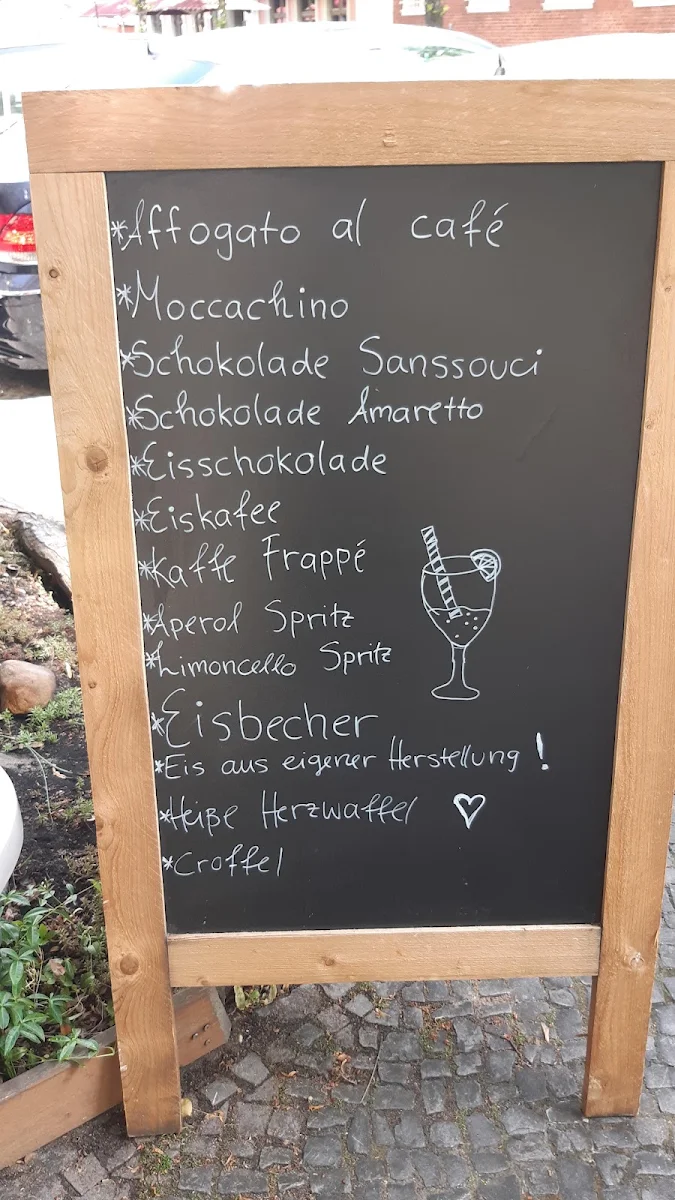 *Affogato al café
*Moccachino
*Schokolade Sanssouci
*Schokolade Amaretto
*Eisschokolade
*Eiskafee
*Kaffe Frappé
*Aperol Spritz
*Limoncello Spritz
*Eisbecher
*Eis aus eigener Herstellung!
*Heiße Herzwaffel ♡
*Croffel